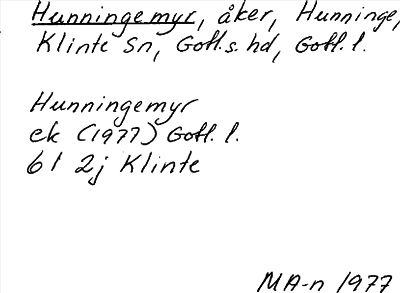 Hunningemyr, åker, Hunninge,
Klinte sn, Gotl.s. hd, Gotl. l.
Hunningemyr
ek (1977) Gotl. l.
6I 2j Klinte
MA-n 1977